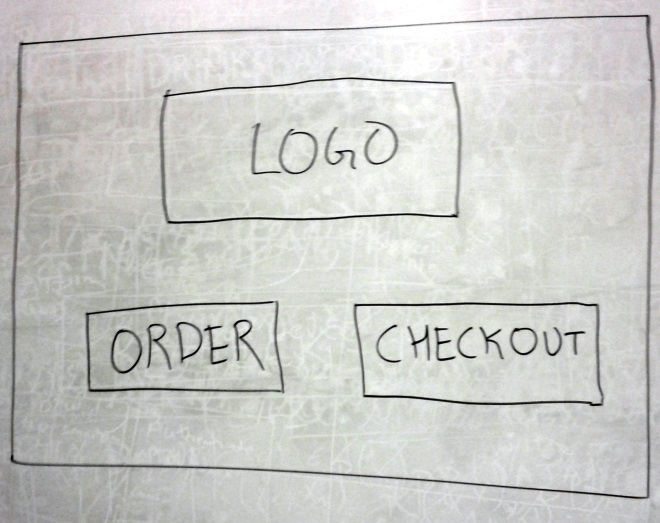 LOGO
ORDER CHECKOUT